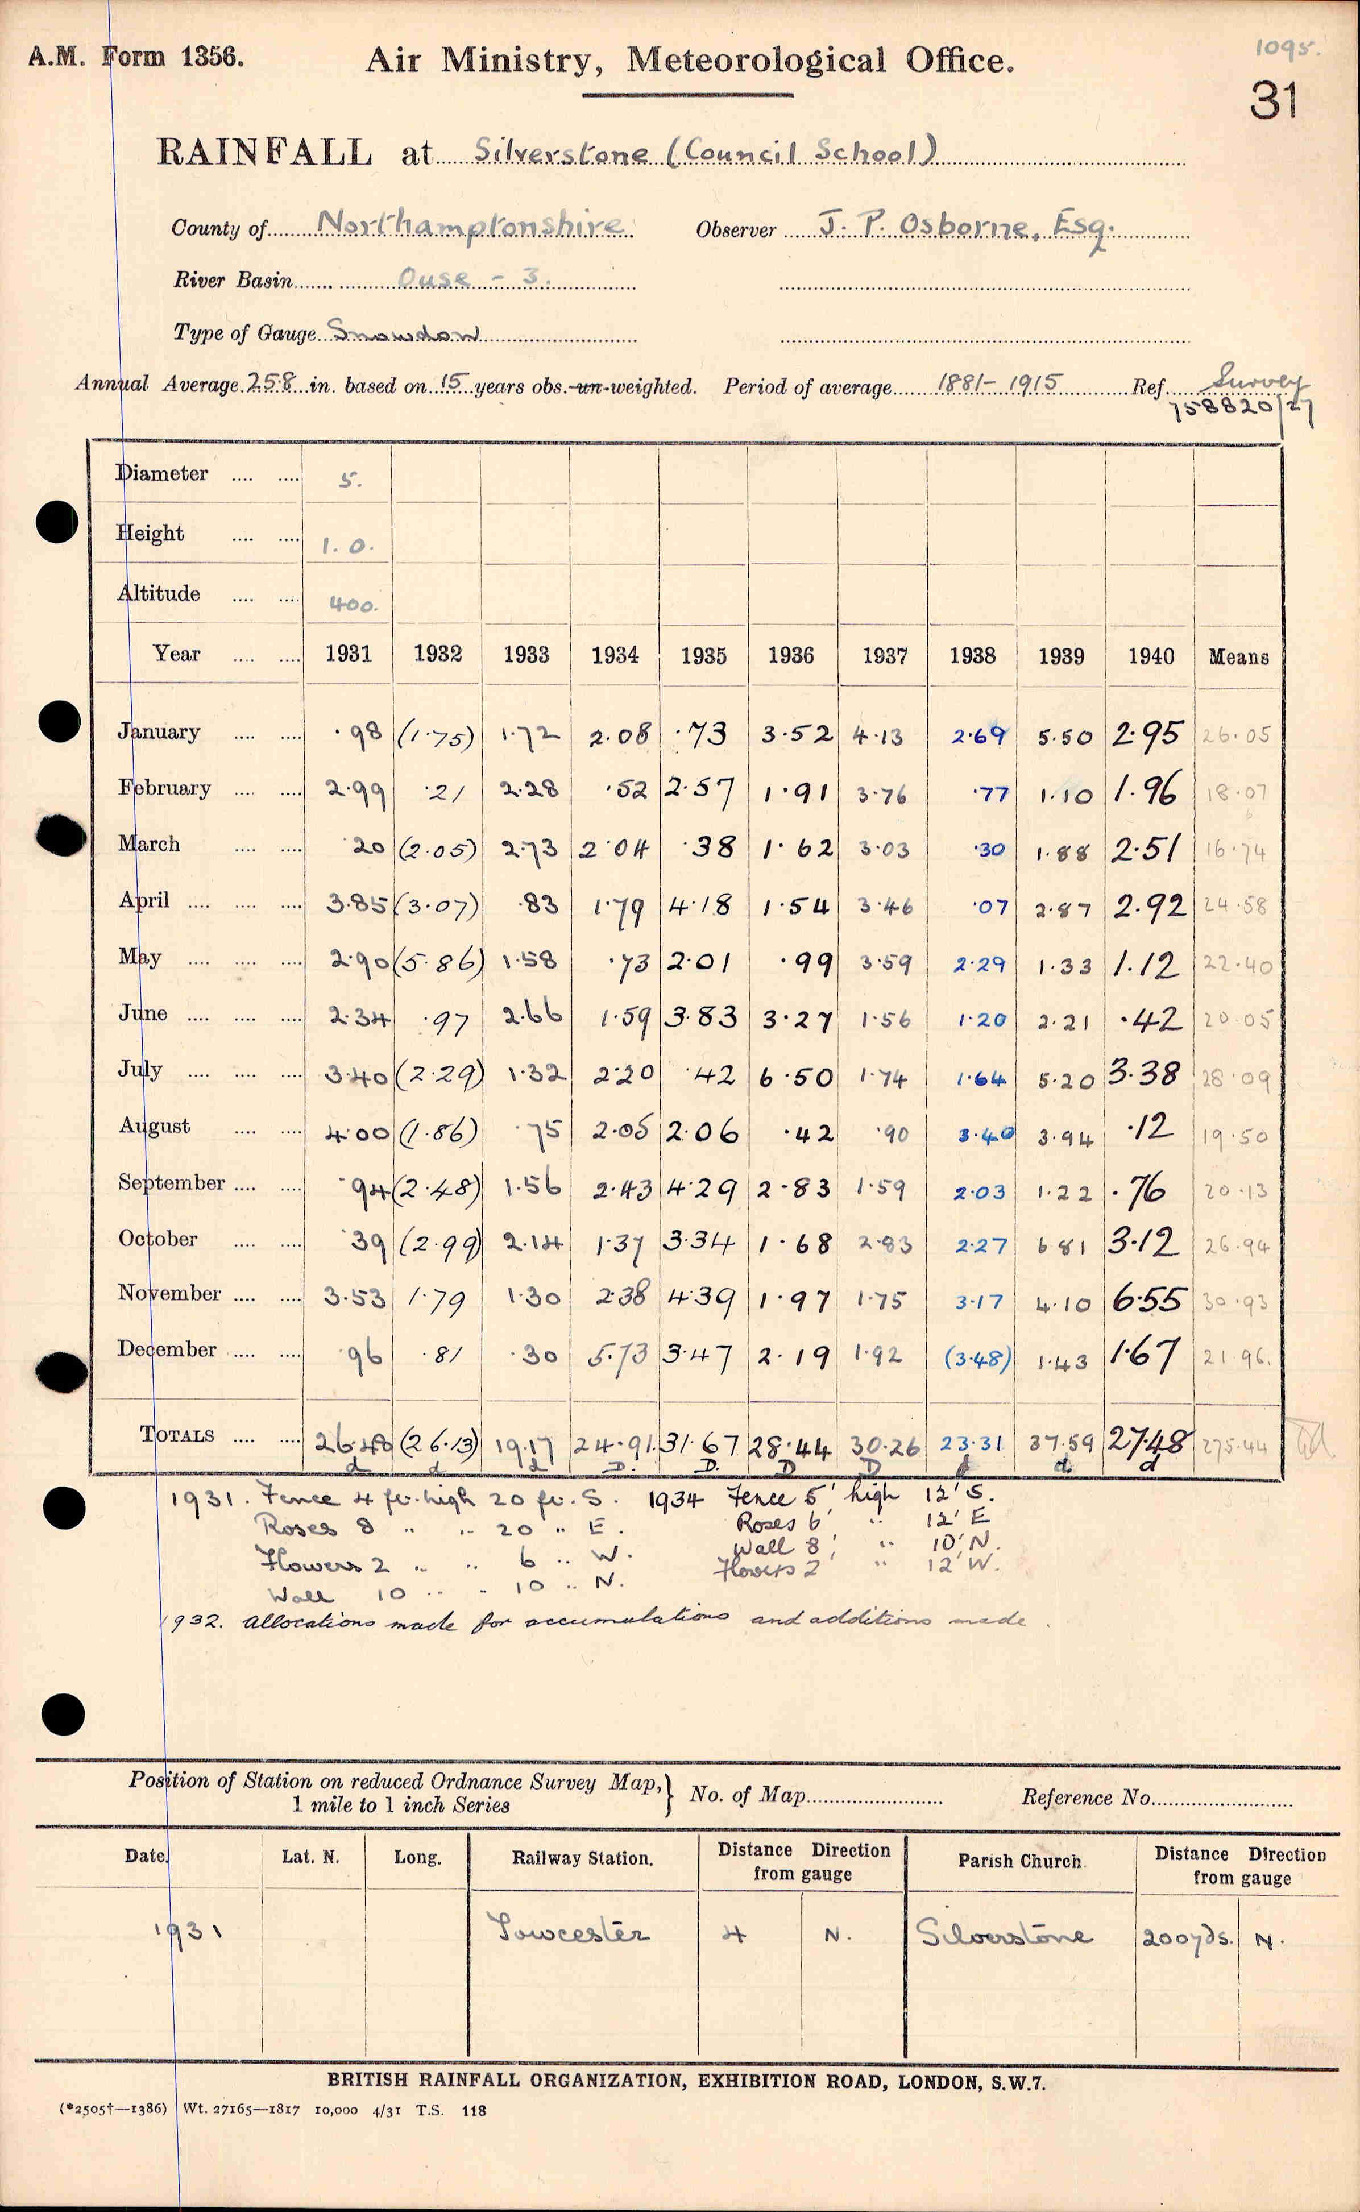 1095.
A.M. Form 1356. Air Ministry, Meteorological Office.
31
RAINFALL at Silverstone (Council School)
County of Northamptonshire Observer J. P. Osborne, Esq.
River Basin Ouse - 3.
Type of Gauge Snowdon
Annual Average 25.8 in. based on 15 years obs. un-weighted. Period of average 1881-1915 Ref. Survey
758820/27
Diameter 5.
Height 1.0.
Altitude 400.
Year 1931 1932 1933 1934 1935 1936 1937 1938 1939 1940 Means
January .98 (1.75) 1.72 2.08 .73 3.52 4.13 2.69 5.50 2.95 26.05
February 2.99 .21 2.28 .52 2.57 1.91 3.76 .77 1.10 1.96 18.07
March .20 (2.05) 2.73 2.04 .38 1.62 3.03 .30 1.88 2.51 16.74
April 3.85 (3.07) .83 1.79 4.18 1.54 3.46 .07 2.87 2.92 24.58
May 2.90 (5.86) 1.58 .73 2.01 .99 3.59 2.29 1.33 1.12 22.40
June 2.34 .97 2.66 1.59 3.83 3.27 1.56 1.20 2.21 .42 20.05
July 3.40 (2.29) 1.32 2.20 .42 6.50 1.74 1.64 5.20 3.38 28.09
August 4.00 (1.86) .75 2.05 2.06 .42 .90 3.40 3.94 .12 19.50
September .94 (2.48) 1.56 2.43 4.29 2.83 1.59 2.03 1.22 .76 20.13
October .39 (2.99) 2.14 1.37 3.34 1.68 2.83 2.27 6.81 3.12 26.94
November 3.53 1.79 1.30 2.38 4.39 1.97 1.75 3.17 4.10 6.55 30.93
December .96 .81 .30 5.73 3.47 2.19 1.92 (3.48) 1.43 1.67 21.96.
TOTALS 26.48 (26.13) 19.17 24.91 31.67 28.44 30.26 23.31 37.59 27.48 275.44
d d d D. D. D D d d d
1931. Fence 4 ft. high 20 ft. S. 1934 Fence 5' high 12' S.
Roses 8 " " 20 " E. Roses 6' " 12' E
Flowers 2 " " 6 " W. Wall 8' " 10' N.
Wall 10 " " 10 " N. Flowers 2' " 12' W.
1932. Allocations made for accumulations and additions made.
Position of Station on reduced Ordnance Survey Map, } No. of Map Reference No.
1 mile to 1 inch Series
Date. Lat. N. Long. Railway Station. Distance Direction from gauge Parish Church Distance Direction from gauge
1931 Towcester 4 N. Silverstone 200 yds. N.
BRITISH RAINFALL ORGANIZATION, EXHIBITION ROAD, LONDON, S.W.7.
(*2505†—1386) Wt. 27165—1817 10,000 4/31 T.S. 118